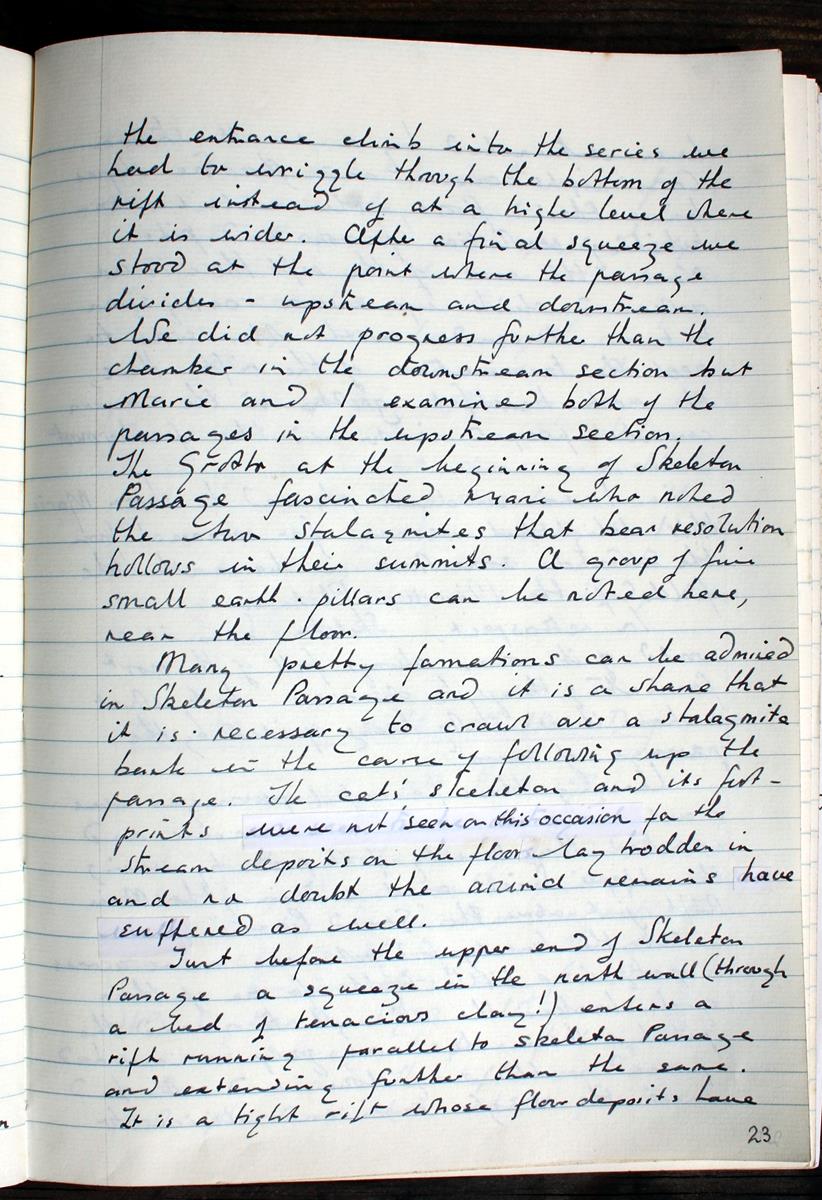 the entrance climb into the series we
had to wriggle through the bottom of the
rift instead of at a higher level where
it is wider. After a final squeeze we
stood at the point where the passage
divides - upstream and downstream.
We did not progress further than the
chamber in the downstream section but
Marie and I examined both of the
passages in the upstream section.
The Grotto at the beginning of Skeleton
Passage fascinated Marie who noted
the two stalagmites that bear resolution
hollows in their summits. A group of fine
small earth-pillars can be noted here,
near the floor.
Many pretty formations can be admired
in Skeleton Passage and it is a shame that
it is necessary to crawl over a stalagmite
bank in the course of following up the
passage. The cats' skeleton and its foot-
prints were not seen on this occasion for the
stream deposits on the floor lay trodden in
and no doubt the animal remains have
suffered as well.
Just before the upper end of Skeleton
Passage a squeeze in the north wall (through
a bed of tenacious clay!) enters a
rift running parallel to Skeleton Passage
and extending further than the same.
It is a tight rift whose floor deposits have
23